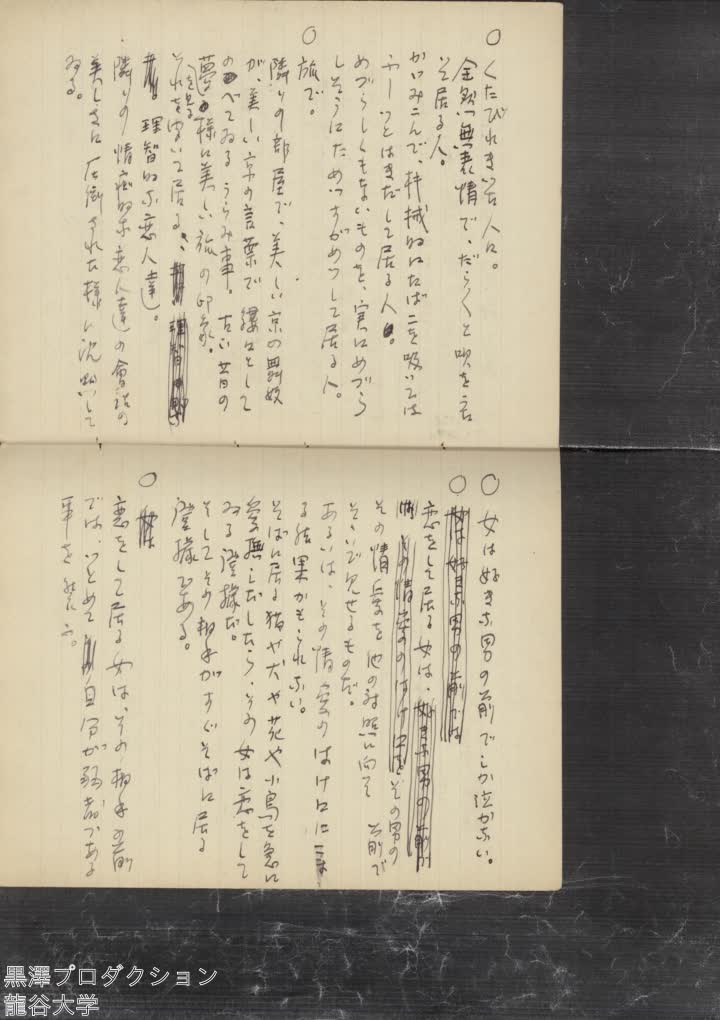 ○ くたびれきった人々。
全然無表情で、だらくと唄を唄って居る人。
かがみこんで、機械的にたばこを吸っては
ふーっとはきだして居る人。
めづらしくもないものを、実にめづら
しそうにためつすがめつして居る人。
○ 旅で。
隣りの部屋で、美しい京の舞妓
が、美しい京の言葉で 縷々として
のべてゐる うらみ事。古い昔の
夢を見る様に美しい旅の印象。
それを聞いて居る、
理智的な恋人達。
隣りの情痴的な恋人達の會話の
美しさに圧倒された様に沈黙して
ゐる。
○ 女は好きな男の前でしか泣かない。
○ 女は好きな男の前では
恋をして居る女は、好きな男の前で
その情愛のはけ口をその男の
その情愛を他の対照に向って 前で
そゝいで見せるものだ。
あるいは、その情愛のはけ口に
る結果かもしれない。
そばに居る猫や犬や花や小鳥を急に
愛撫しだしたら、その女は恋をして
ゐる證據だ。
そしてその相手がすぐそばに居る
證據である。
○ 女は
恋をして居る女は、その相手の前
では、つとめて自分が弱者である
事を装ふ。
黒澤プロダクション
龍谷大学